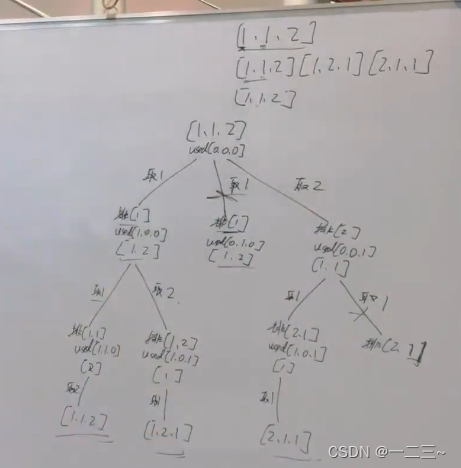 [1,1,2]
[1,1,2][1,2,1][2,1,1]
[1,1,2]
[1,1,2]
used[0,0,0]
取1 取1 取2
排[1] 排[1] 排[2]
used[1,0,0] used[0,1,0] used[0,0,1]
[1,2] [1,2] [1,1]
取1 取2 取1 取1
排[1,1] 排[1,2] 排[2,1] 排[2,1]
used[1,1,0] used[1,0,1] used[1,0,1]
[2] [1] [1]
取2 取1 取1
[1,1,2] [1,2,1] [2,1,1]
CSDN @一二三~